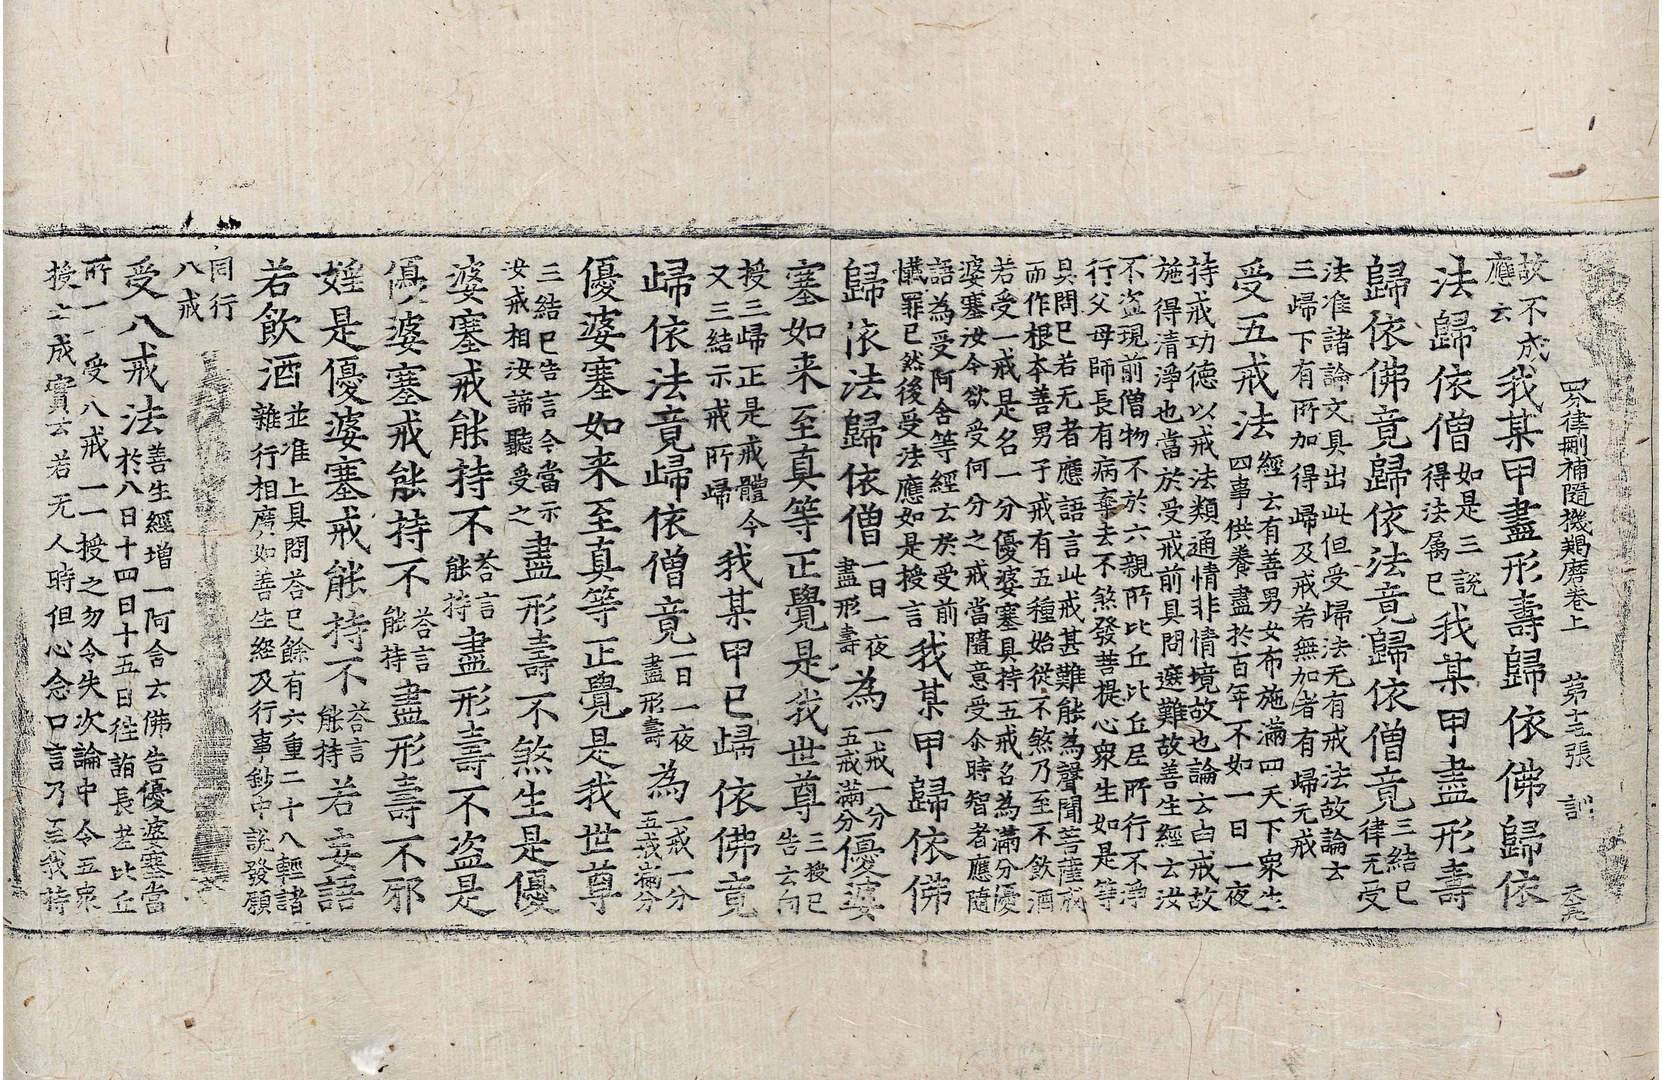 四分律刪補隨機羯磨卷上　第十五張　訓
故不成
應云
我某甲盡形壽歸依佛歸依
法歸依僧
如是三說
得法属已
我某甲盡形壽
歸依佛竟歸依法竟歸依僧竟
三結已
律无受
法准諸論文具出此但受歸法无有戒法故論云
三歸下有所加得歸及戒若無加者有歸无戒
受五戒法
經云有善男女布施滿四天下衆生
四事供養盡於百年不如一日一夜
持戒功德以戒法類通情非情境故也論云白戒故
施得清淨也當於受戒前具問遮難故善生經云汝
不盗現前僧物不於六親所比丘比丘尼所行不淨
行父母師長有病棄去不煞發菩提心衆生如是等
具問已若无者應語言此戒甚難能為聲聞菩薩戒
而作根本善男子戒有五種始從不煞乃至不飲酒
若受一戒是名一分優婆塞具持五戒名為滿分優
婆塞汝今欲受何分之戒當隨意受尒時智者應隨
語為受阿舍等經云於受前
懺罪已然後受法應如是授言
我某甲歸依佛
歸依法歸依僧
一日一夜
盡形壽
為
一戒一分
五戒滿分
優婆
塞如来至真等正覺是我世尊
三授已
告云向
授三歸正是戒體今
又三結示戒所歸
我某甲已歸依佛竟
歸依法竟歸依僧竟
一日一夜
盡形壽
為
一戒一分
五戒滿分
優婆塞如来至真等正覺是我世尊
三結已告言今當示
汝戒相汝諦聽受之
盡形壽不煞生是優
婆塞戒能持不
荅言
能持
盡形壽不盗是
優婆塞戒能持不
荅言
能持
盡形壽不邪
婬是優婆塞戒能持不
荅言
能持
若妄語
若飲酒
並准上具問荅已餘有六重二十八輕諸
雜行相廣如善生經及行事鈔中說發願
同行
八戒
受八戒法
善生經增一阿舍云佛告優婆塞當
於八日十四日十五日徃詣長老比丘
所一一受八戒一一授之勿令失次論中令五衆
授之成實云若无人時但心念口言乃至我持